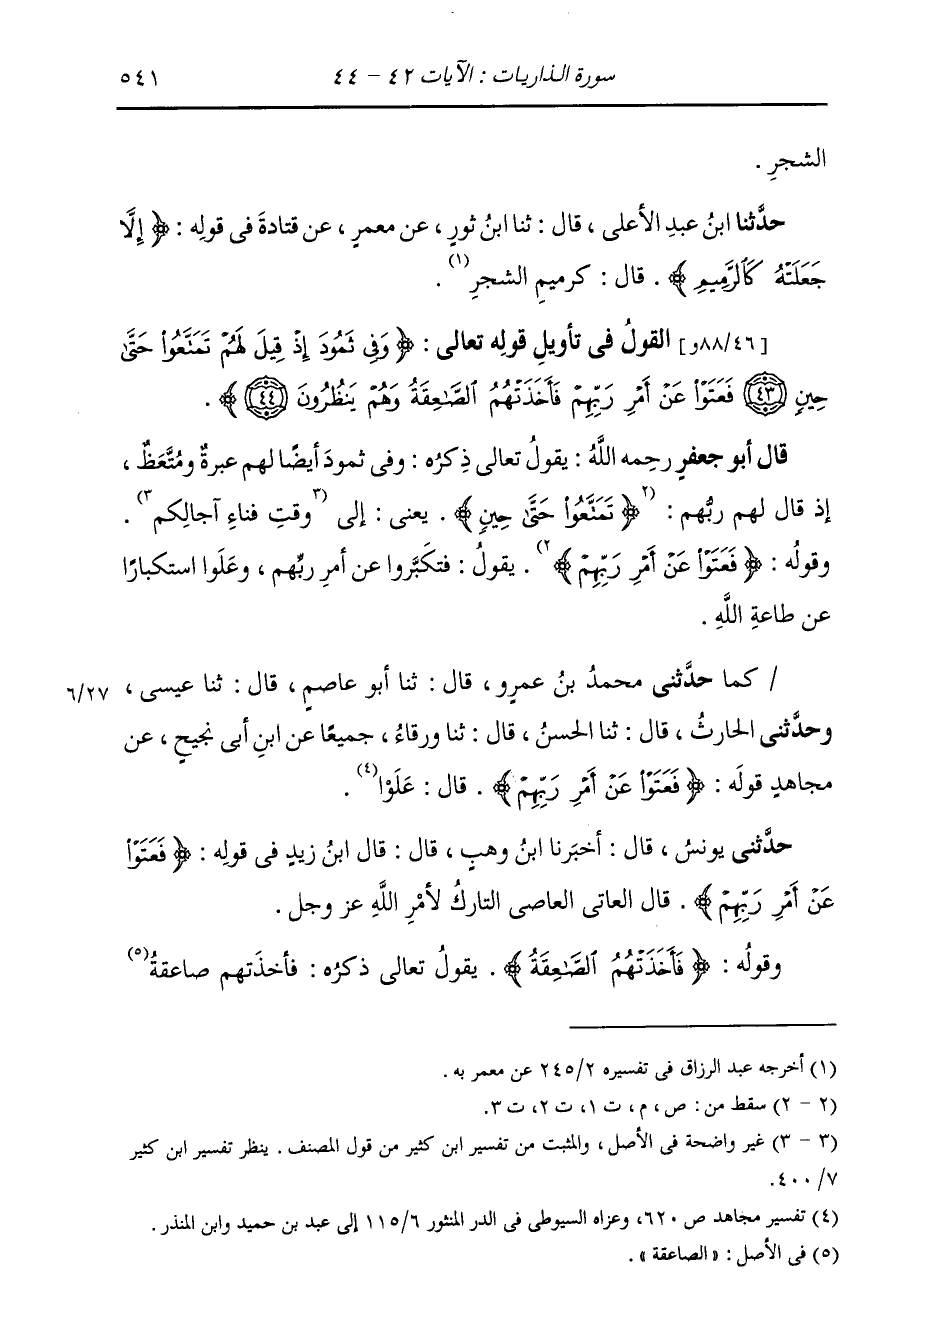 سورة الذاريات : الآيات ٤٢ - ٤٤ ٥٤١
الشجرِ .
حدَّثنا ابنُ عبدِ الأعلى ، قال : ثنا ابنُ ثورٍ ، عن معمرٍ ، عن قتادةَ فى قولِه : ﴿ إِلَّا
جَعَلَتْهُ كَٱلرَّمِيمِ ﴾ . قال : كرميمِ الشجرِ(١) .
[٨٨/٤٦و] القولُ فى تأويلِ قولِه تعالى : ﴿ وَفِى ثَمُودَ إِذْ قِيلَ لَهُمْ تَمَنَّعُوا۟ حَتَّىٰ
حِينٍ ٤٣ فَعَتَوْا۟ عَنْ أَمْرِ رَبِّهِمْ فَأَخَذَتْهُمُ ٱلصَّـٰعِقَةُ وَهُمْ يَنظُرُونَ ٤٤ ﴾ .
قال أبو جعفرٍ رحِمه اللَّهُ : يقولُ تعالى ذِكرُه : وفى ثمودَ أيضًا لهم عبرةٌ ومُتَّعَظٌ ،
إذ قال لهم ربُّهم : (٢﴿ تَمَنَّعُوا۟ حَتَّىٰ حِينٍ ﴾ . يعنى : إلى (٣وقتِ فناءِ آجالِكم٣) .
وقولُه : ﴿ فَعَتَوْا۟ عَنْ أَمْرِ رَبِّهِمْ ﴾٢) . يقولُ : فتكَبَّروا عن أمرِ ربِّهم ، وعَلَوا استكبارًا
عن طاعةِ اللَّهِ .
/ كما حدَّثنى محمدُ بنُ عمرٍو ، قال : ثنا أبو عاصمٍ ، قال : ثنا عيسى ، ٦/٢٧
وحدَّثنى الحارثُ ، قال : ثنا الحسنُ ، قال : ثنا ورقاءُ ، جميعًا عن ابنِ أبى نجيحٍ ، عن
مجاهدٍ قولَه : ﴿ فَعَتَوْا۟ عَنْ أَمْرِ رَبِّهِمْ ﴾ . قال : عَلَوْا(٤) .
حدَّثنى يونسُ ، قال : أخبَرنا ابنُ وهبٍ ، قال : قال ابنُ زيدٍ فى قولِه : ﴿ فَعَتَوْا۟
عَنْ أَمْرِ رَبِّهِمْ ﴾ . قال العاتى العاصى التاركُ لأمْرِ اللَّهِ عز وجل .
وقولُه : ﴿ فَأَخَذَتْهُمُ ٱلصَّـٰعِقَةُ ﴾ . يقولُ تعالى ذكرُه : فأخذَتهم صاعقةُ(٥)
(١) أخرجه عبد الرزاق فى تفسيره ٢٤٥/٢ عن معمر به .
(٢ - ٢) سقط من : ص ، م ، ت ١، ت ٢، ت ٣.
(٣ - ٣) غير واضحة فى الأصل ، والمثبت من تفسير ابن كثير من قول المصنف . ينظر تفسير ابن كثير
٤٠٠/٧.
(٤) تفسير مجاهد ص ٦٢٠، وعزاه السيوطى فى الدر المنثور ١١٥/٦ إلى عبد بن حميد وابن المنذر .
(٥) فى الأصل : « الصاعقة » .